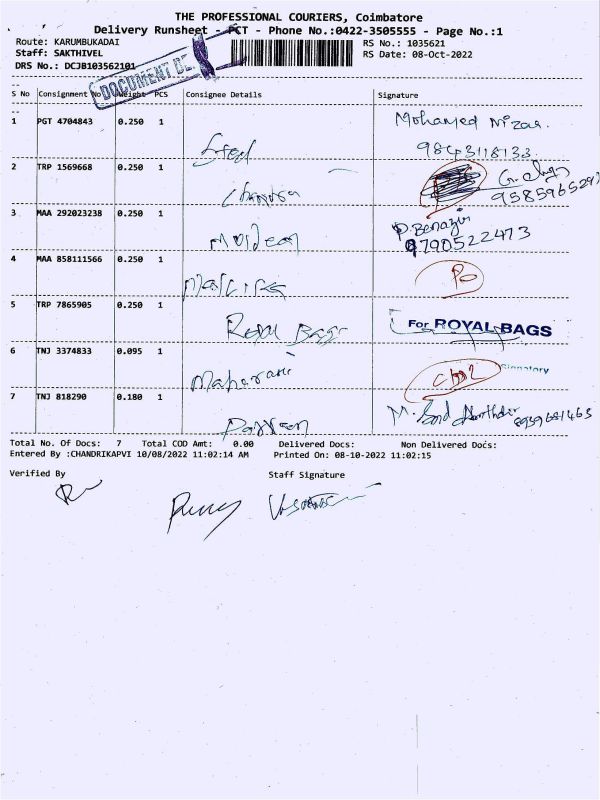 THE PROFESSIONAL COURIERS, Coimbatore
Delivery Runsheet - PCT - Phone No.:0422-3505555 - Page No.:1
Route: KARUMBUKADAI RS No.: 1035621
Staff: SAKTHIVEL RS Date: 08-Oct-2022
DRS No.: DCJB103562101
DOCUMENT DE
S No Consignment No Weight PCS Consignee Details Signature
1 PGT 4704843 0.250 1 Syed Mohamed Nizar
9843118133
2 TRP 1569668 0.250 1 Chandra
3 MAA 292023238 0.250 1 Moideen P. Benazir
9790522473
4 MAA 858111566 0.250 1
5 TRP 7865905 0.250 1 Royal Bags For ROYAL BAGS
Signatory
6 TNJ 3374833 0.095 1 Maharani
7 TNJ 818290 0.180 1 8939681463
Total No. Of Docs: 7 Total COD Amt: 0.00 Delivered Docs: Non Delivered Docs:
Entered By :CHANDRIKAPVI 10/08/2022 11:02:14 AM Printed On: 08-10-2022 11:02:15
Verified By Staff Signature